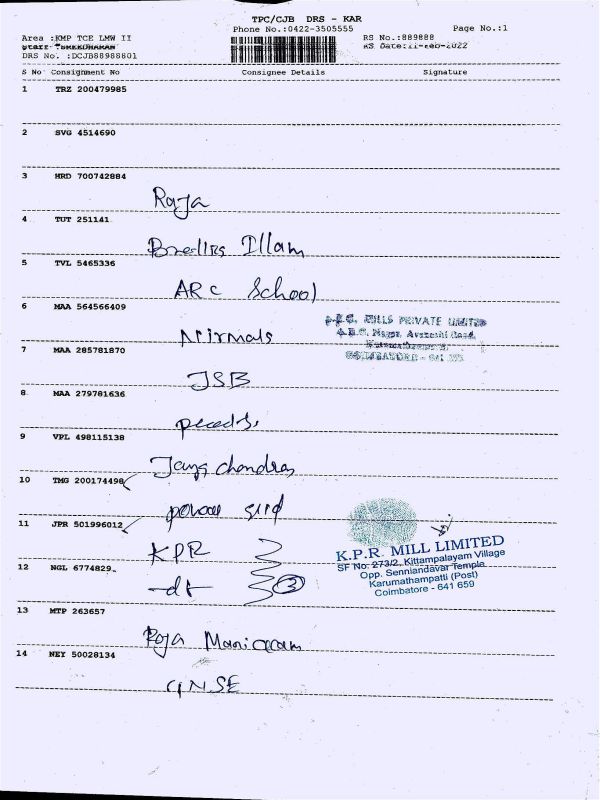 TPC/CJB DRS - KAR
Phone No.:0422-3505555
Page No.:1
Area :KMP TCE LMW II
RS No.:889888
Staff
RS Date:11-Feb-2022
DRS No. :DCJB88988801
S No Consignment No Consignee Details Signature
1 TRZ 200479985
2 SVG 4514690
3 HRD 700742884
Raja
4 TUT 251141
Illam
5 TVL 5465336
ARC School
6 MAA 564566409
MILLS PRIVATE LIMITED
Nirmals
7 MAA 285781870
JSB
8 MAA 279781636
9 VPL 498115138
10 TMG 200174498
11 JPR 501996012
KPR
K.P.R. MILL LIMITED
SF No: 273/2, Kittampalayam Village
Opp. Senniandavar Temple
Karumathampatti (Post)
Coimbatore - 641 659
12 NGL 6774829
3
13 MTP 263657
Raja
14 NEY 50028134